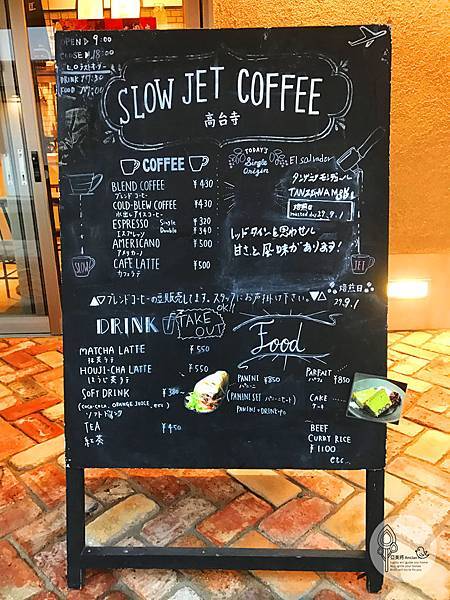 OPEN ▷ 9:00
CLOSE ▷ 18:00
ラストオーダー
DRINK 17:30
FOOD 17:00
SLOW JET COFFEE
高台寺
COFFEE
BLEND COFFEE ¥430
ブレンドコーヒー
COLD-BLEW COFFEE ¥430
水出しアイスコーヒー
ESPRESSO Single ¥320
エスプレッソ Double ¥340
AMERICANO ¥500
アメリカーノ
CAFE LATTE ¥500
カフェラテ
TODAY'S
Single
Origin
El salvador
TANZANIA
焙煎日
roasted day 29.9.1
レッドワインを思わせる
甘さと風味があります!
SLOW
JET
ブレンドコーヒーの豆販売してます。スタッフにお声掛け下さい。
焙煎日
29.9.1
DRINK
OK!!
TAKE
OUT
MATCHA LATTE ¥550
抹茶ラテ
HOUJI-CHA LATTE ¥550
ほうじ茶ラテ
SOFT DRINK ¥380
(COCA-COLA, ORANGE JUICE, etc)
ソフトドリンク
TEA ¥450
紅茶
Food
PANINI ¥850
パニーニ
(PANINI SET パニーニセット)
PANINI + DRINK
PARFAIT ¥850
パフェ
CAKE
ケーキ
BEEF
CURRY RICE
¥1100
etc...
亞美將 Amctan